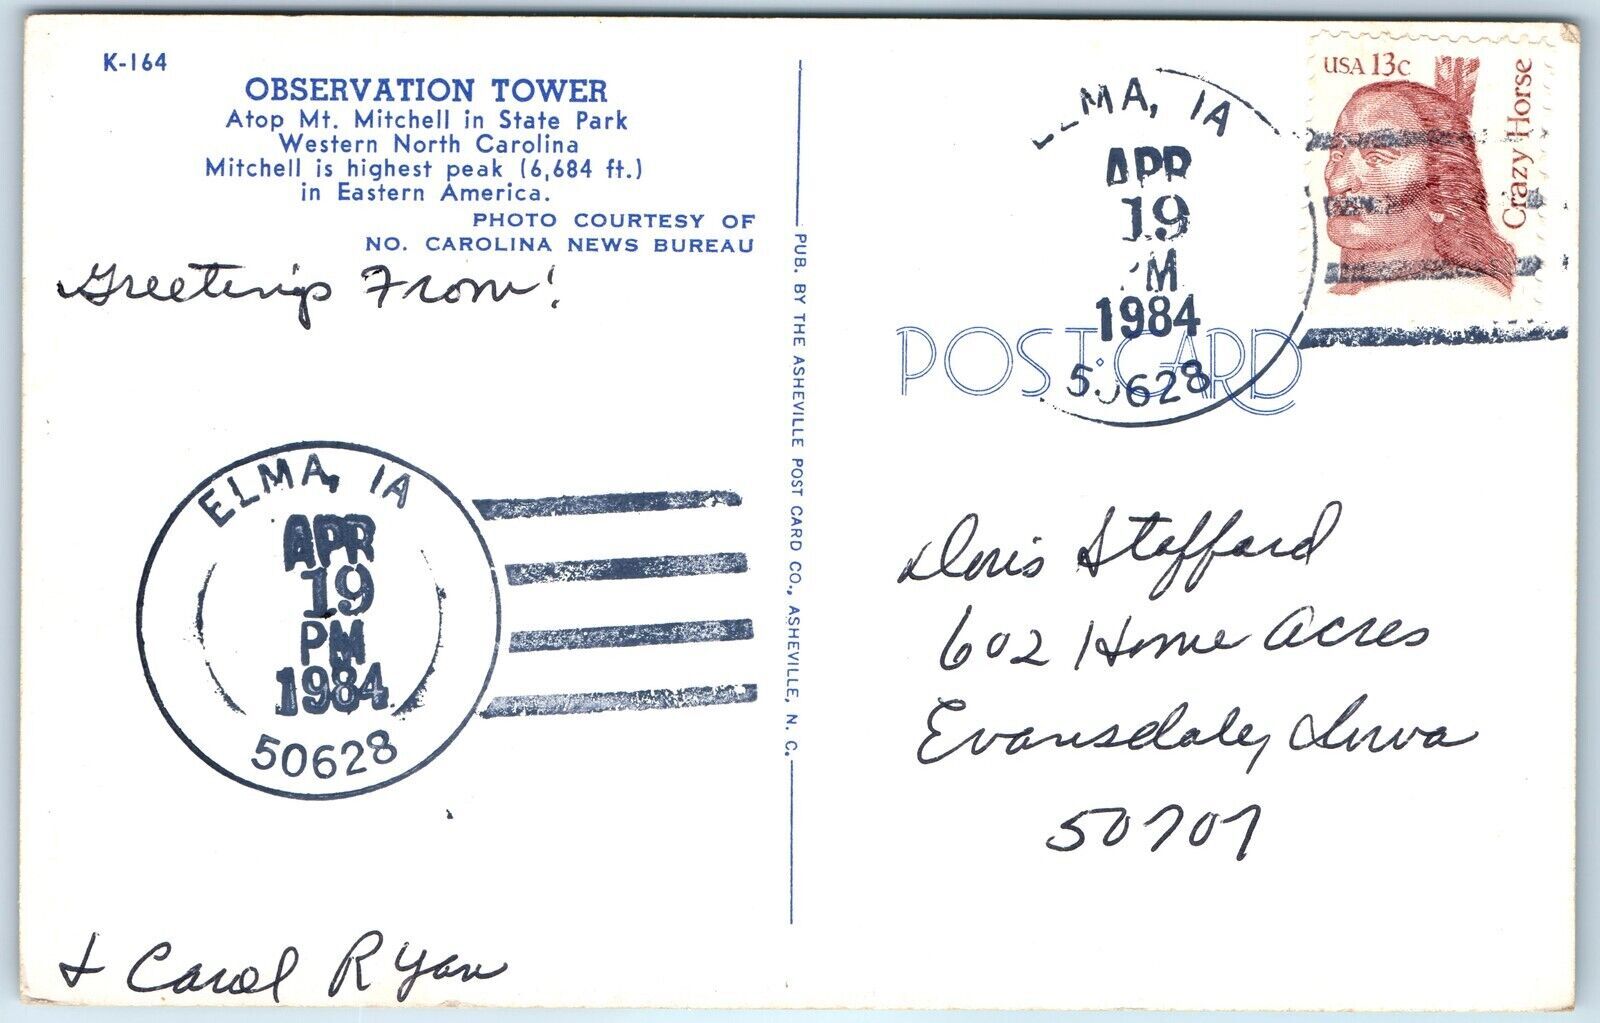 K-164
OBSERVATION TOWER
Atop Mt. Mitchell in State Park
Western North Carolina
Mitchell is highest peak (6,684 ft.)
in Eastern America.
PHOTO COURTESY OF
NO. CAROLINA NEWS BUREAU
Greetings From!
ELMA, IA
APR
19
PM
1984
50628
& Carol Ryan
PUB. BY THE ASHEVILLE POST CARD CO., ASHEVILLE, N. C.
ELMA, IA
APR
19
PM
1984
50628
USA 13c
Crazy Horse
POST CARD
Doris Stafford
602 Home Acres
Evansdale, Iowa
50707